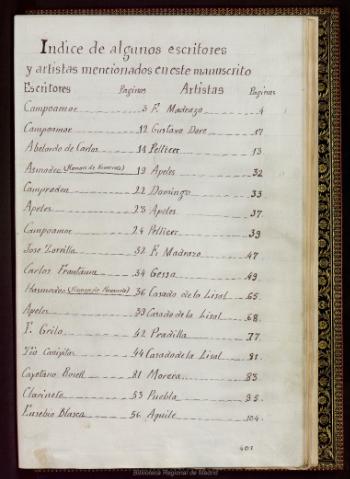 Indice de algunos escritores
y artistas mencionados en este manuscrito
Escritores Paginas Artistas Paginas
Campoamor 3 F. Madrazo 4
Campoamor 12 Gustavo Dore 17
Abelardo de Carlos 14 Pellicer 13
Asmodeo (Ramon de Navarrete) 19 Apeles 32
Campredon 22 Domingo 33
Apeles 23 Apeles 37
Campoamor 24 Pellicer 39
Jose Zorrilla 52 F. Madrazo 47
Carlos Frontaura 34 Gessa 49
Hasmodeo (Ramon de Navarrete) 36 Casado de la Lisal 65
Apeles 39 Casado de la Lisal 68
F. Grilo 42 Pradilla 77
Tio Conejitos 44 Casado de la Lisal 81
Cayetano Rosell 81 Morera 83
Clarinete 53 Puebla 95
Eusebio Blasco 56 Aguile 104
401
Biblioteca Regional de Madrid